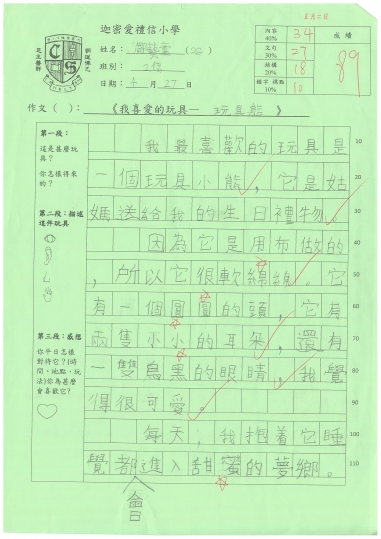 迦密愛禮信小學
姓名：
班別：
日期： 十 月 27 日
內容 40% 34
文句 30% 27
結構 20% 18
錯字 標點 10% 10
成績
89
作文（ ）： 《我喜愛的玩具— 玩具熊 》
第一段：
這是甚麼玩具？
你怎樣得來的？
第二段：描述這件玩具
第三段：感想
你平日怎樣對待它？(時間、地點、玩法)你為甚麼會喜歡它？
我最喜歡的玩具是 10
一個玩具小熊，它是姑 20
媽送給我的生日禮物。 30
因為它是用布做的 40
，所以它很軟綿綿。它 50
有一個圓圓的頭，它有 60
兩隻小小的耳朵，還有 70
一雙烏黑的眼睛，我覺 80
得很可愛。 90
每天，我抱着它睡 100
覺都進入甜蜜的夢鄉。 110
會